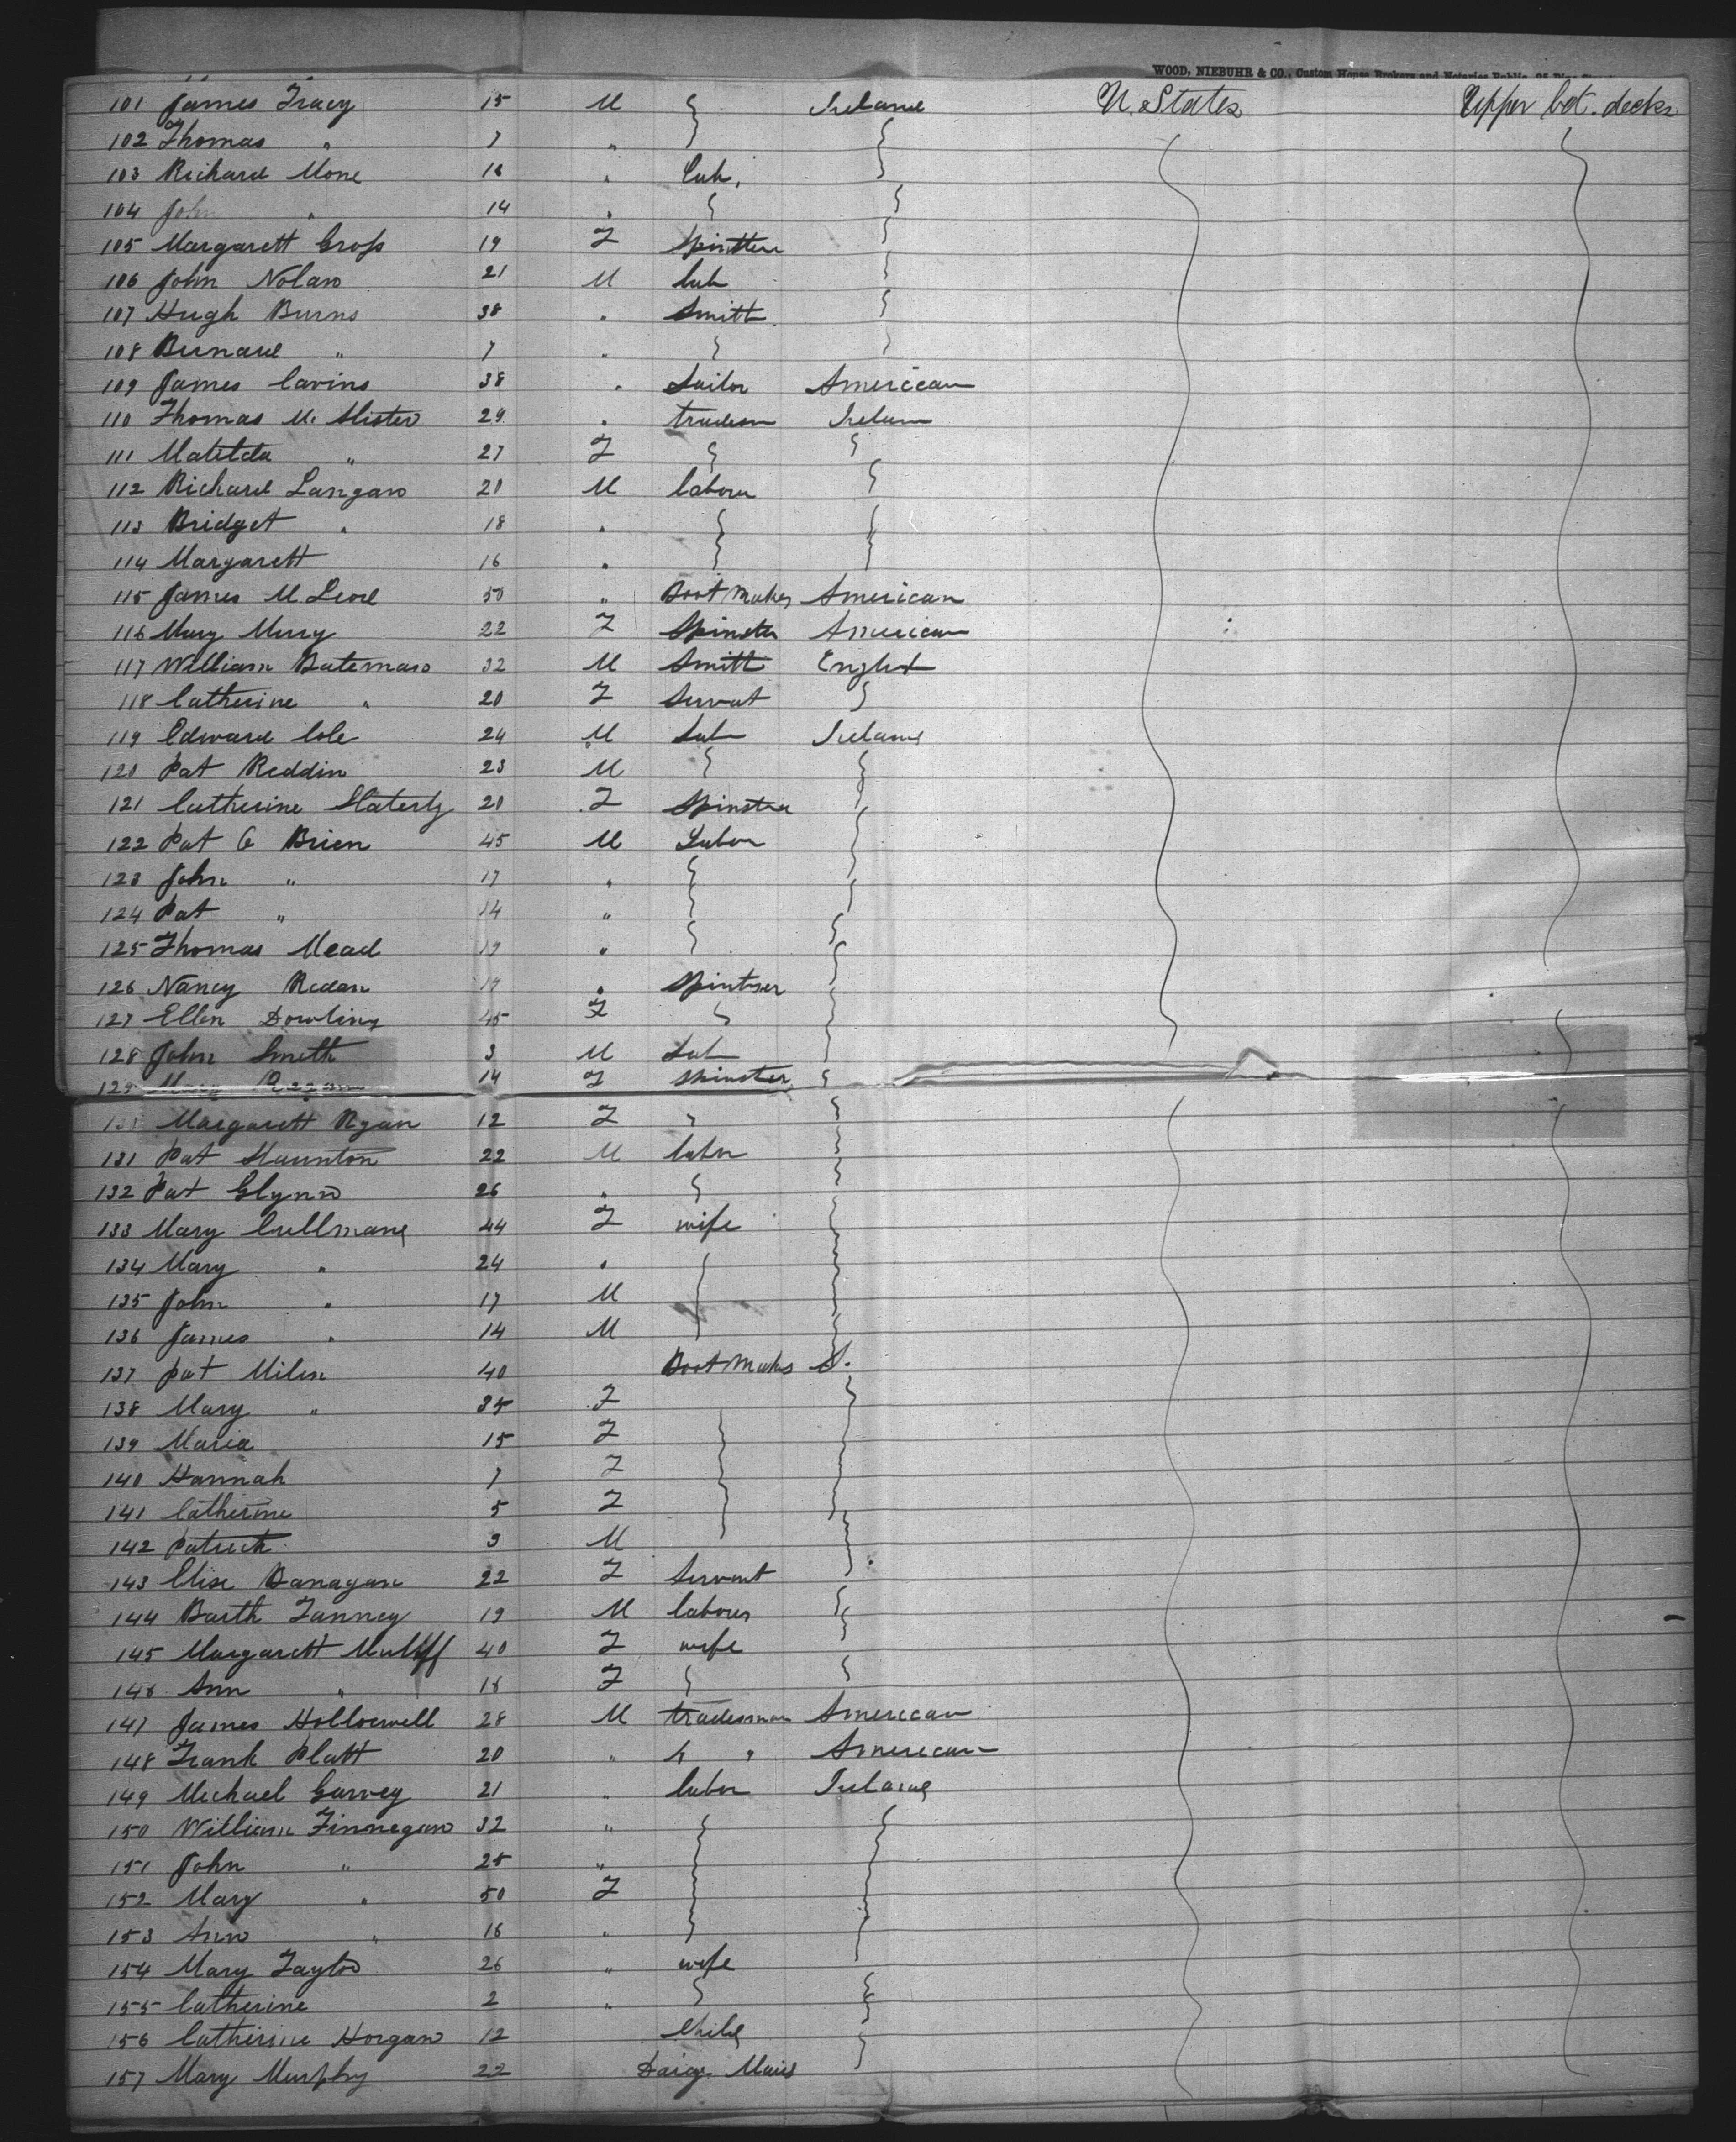 WOOD, NIEBUHR & CO., Custom House Brokers and Notaries Public,
101 James Tracy 15 M Ireland U. States Upper bet. decks
102 Thomas " 7 "
103 Richard Mone 18 " Lab.
104 John " 14 "
105 Margarett Gross 19 F Spinster
106 John Nolan 21 M Lab
107 Hugh Burns 38 " Smith
108 Bernard " 7 "
109 James Cavins 38 " Sailor American
110 Thomas Mc Alister 29 " tradesm Ireland
111 Matilda " 27 F
112 Richard Langan 20 M labour
113 Bridget " 18 "
114 Margarett 16 "
115 James McLeod 50 " Boot maker American
116 Mary Mury 22 F Spinster American
117 William Bateman 32 M Smith English
118 Catherine " 20 F Servant
119 Edward Cole 24 M Lab Ireland
120 Pat Reddin 23 M
121 Catherine Slatery 20 F Spinster
122 Pat O Brien 45 M Labor
123 John " 17 "
124 Pat " 14 "
125 Thomas Mead 19 "
126 Nancy Redan 19 " Spintser
127 Ellen Dowling 45 F
128 John Smith 3 M Lab
129 Mary Regan 14 F spinster
Margarett Ryan 12 F "
131 Pat Staunton 22 M labor
132 Pat Glynn 26 "
133 Mary Cullmane 44 F wife
134 Mary " 24 "
135 John " 17 M
136 James " 14 M
137 Pat Milen 40 Boot maker
138 Mary " 35 F
139 Maria 15 F
140 Hannah 7 F
141 Catherine 5 F
142 Patrick 3 M
143 Elise Banagan 22 F Servant
144 Barth Fanney 19 M labour
145 Margarett 40 F wife
146 Ann " 18 F
147 James Hollowell 28 M tradesman American
148 Frank Platt 20 " " " American
149 Michael Garvey 21 " labor Ireland
150 William Finnegan 32 "
151 John " 25 "
152 Mary " 50 F
153 Ann " 16 "
154 Mary Taylor 26 " wife
155 Catherine 2 "
156 Catherine Horgan 12 Child
157 Mary Murphy 22 Dairy Maid